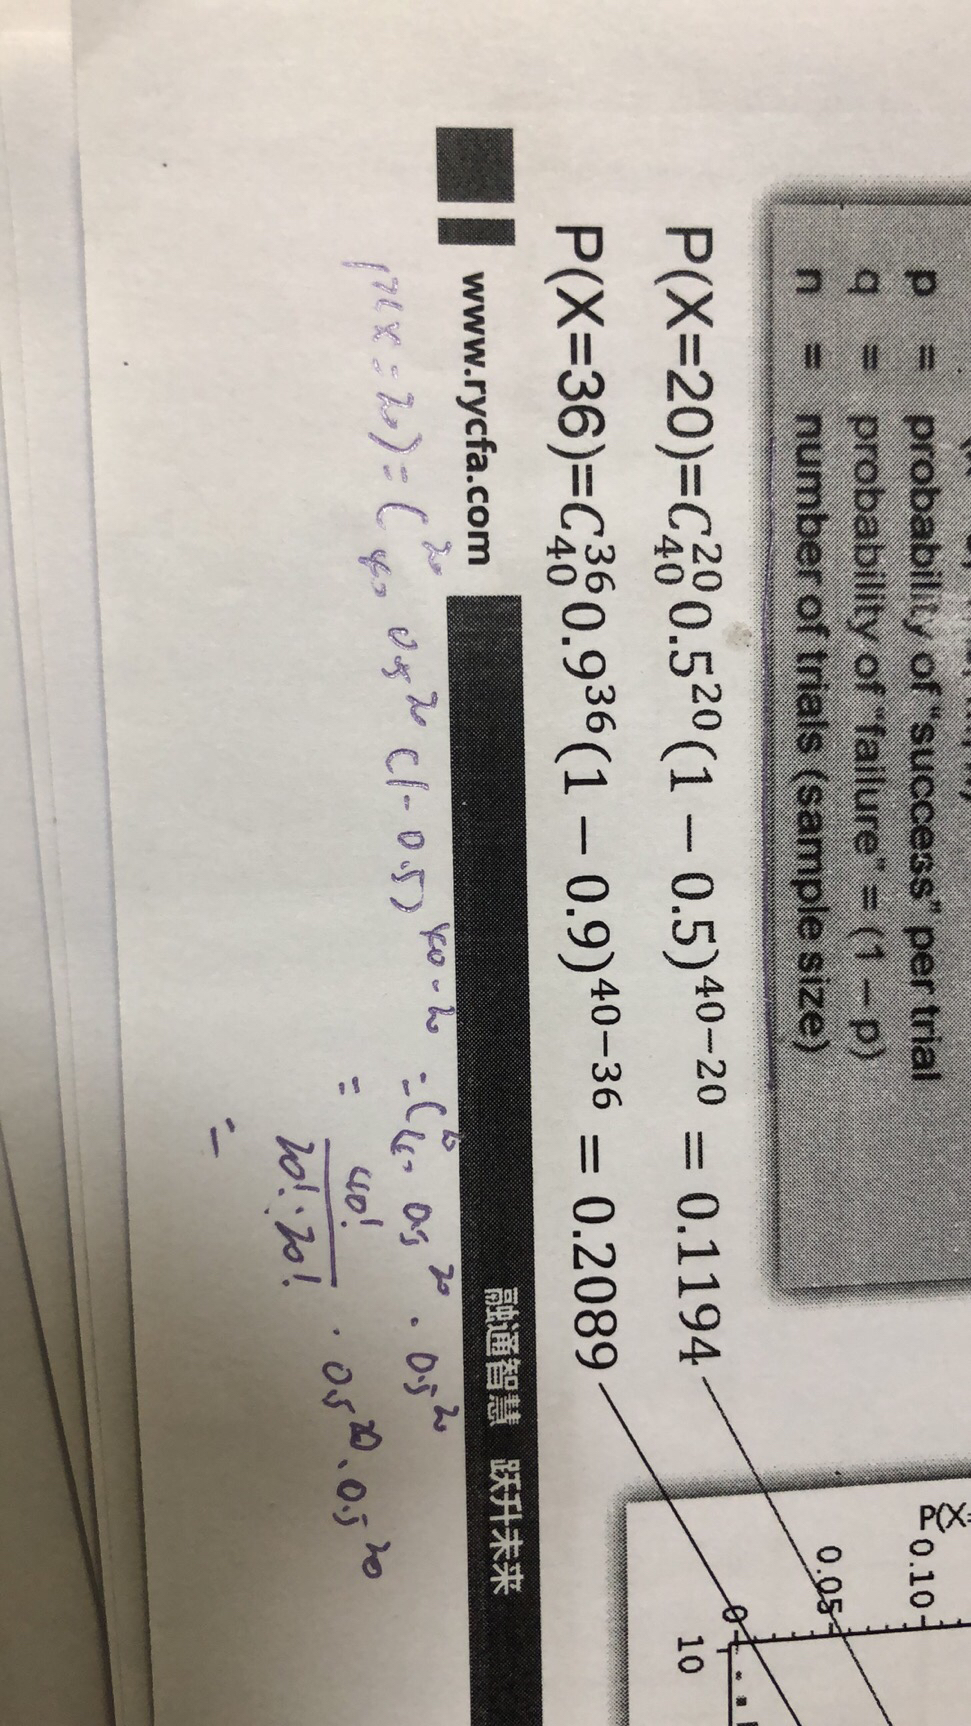 p = probability of "success" per trial
q = probability of "failure" = (1 – p)
n = number of trials (sample size)
P(X=20)=C₄₀²⁰0.5²⁰(1 − 0.5)⁴⁰⁻²⁰ = 0.1194
P(X=36)=C₄₀³⁶0.9³⁶(1 − 0.9)⁴⁰⁻³⁶ = 0.2089
P(X=
0.10
0.05
0
10
www.rycfa.com
融通智慧 跃升未来
P(X=20)=C₄₀²⁰ 0.5²⁰ (1-0.5)⁴⁰⁻²⁰ = C₄₀²⁰ 0.5²⁰ · 0.5²⁰
= 40! / 20!·20! · 0.5²⁰ · 0.5²⁰
=